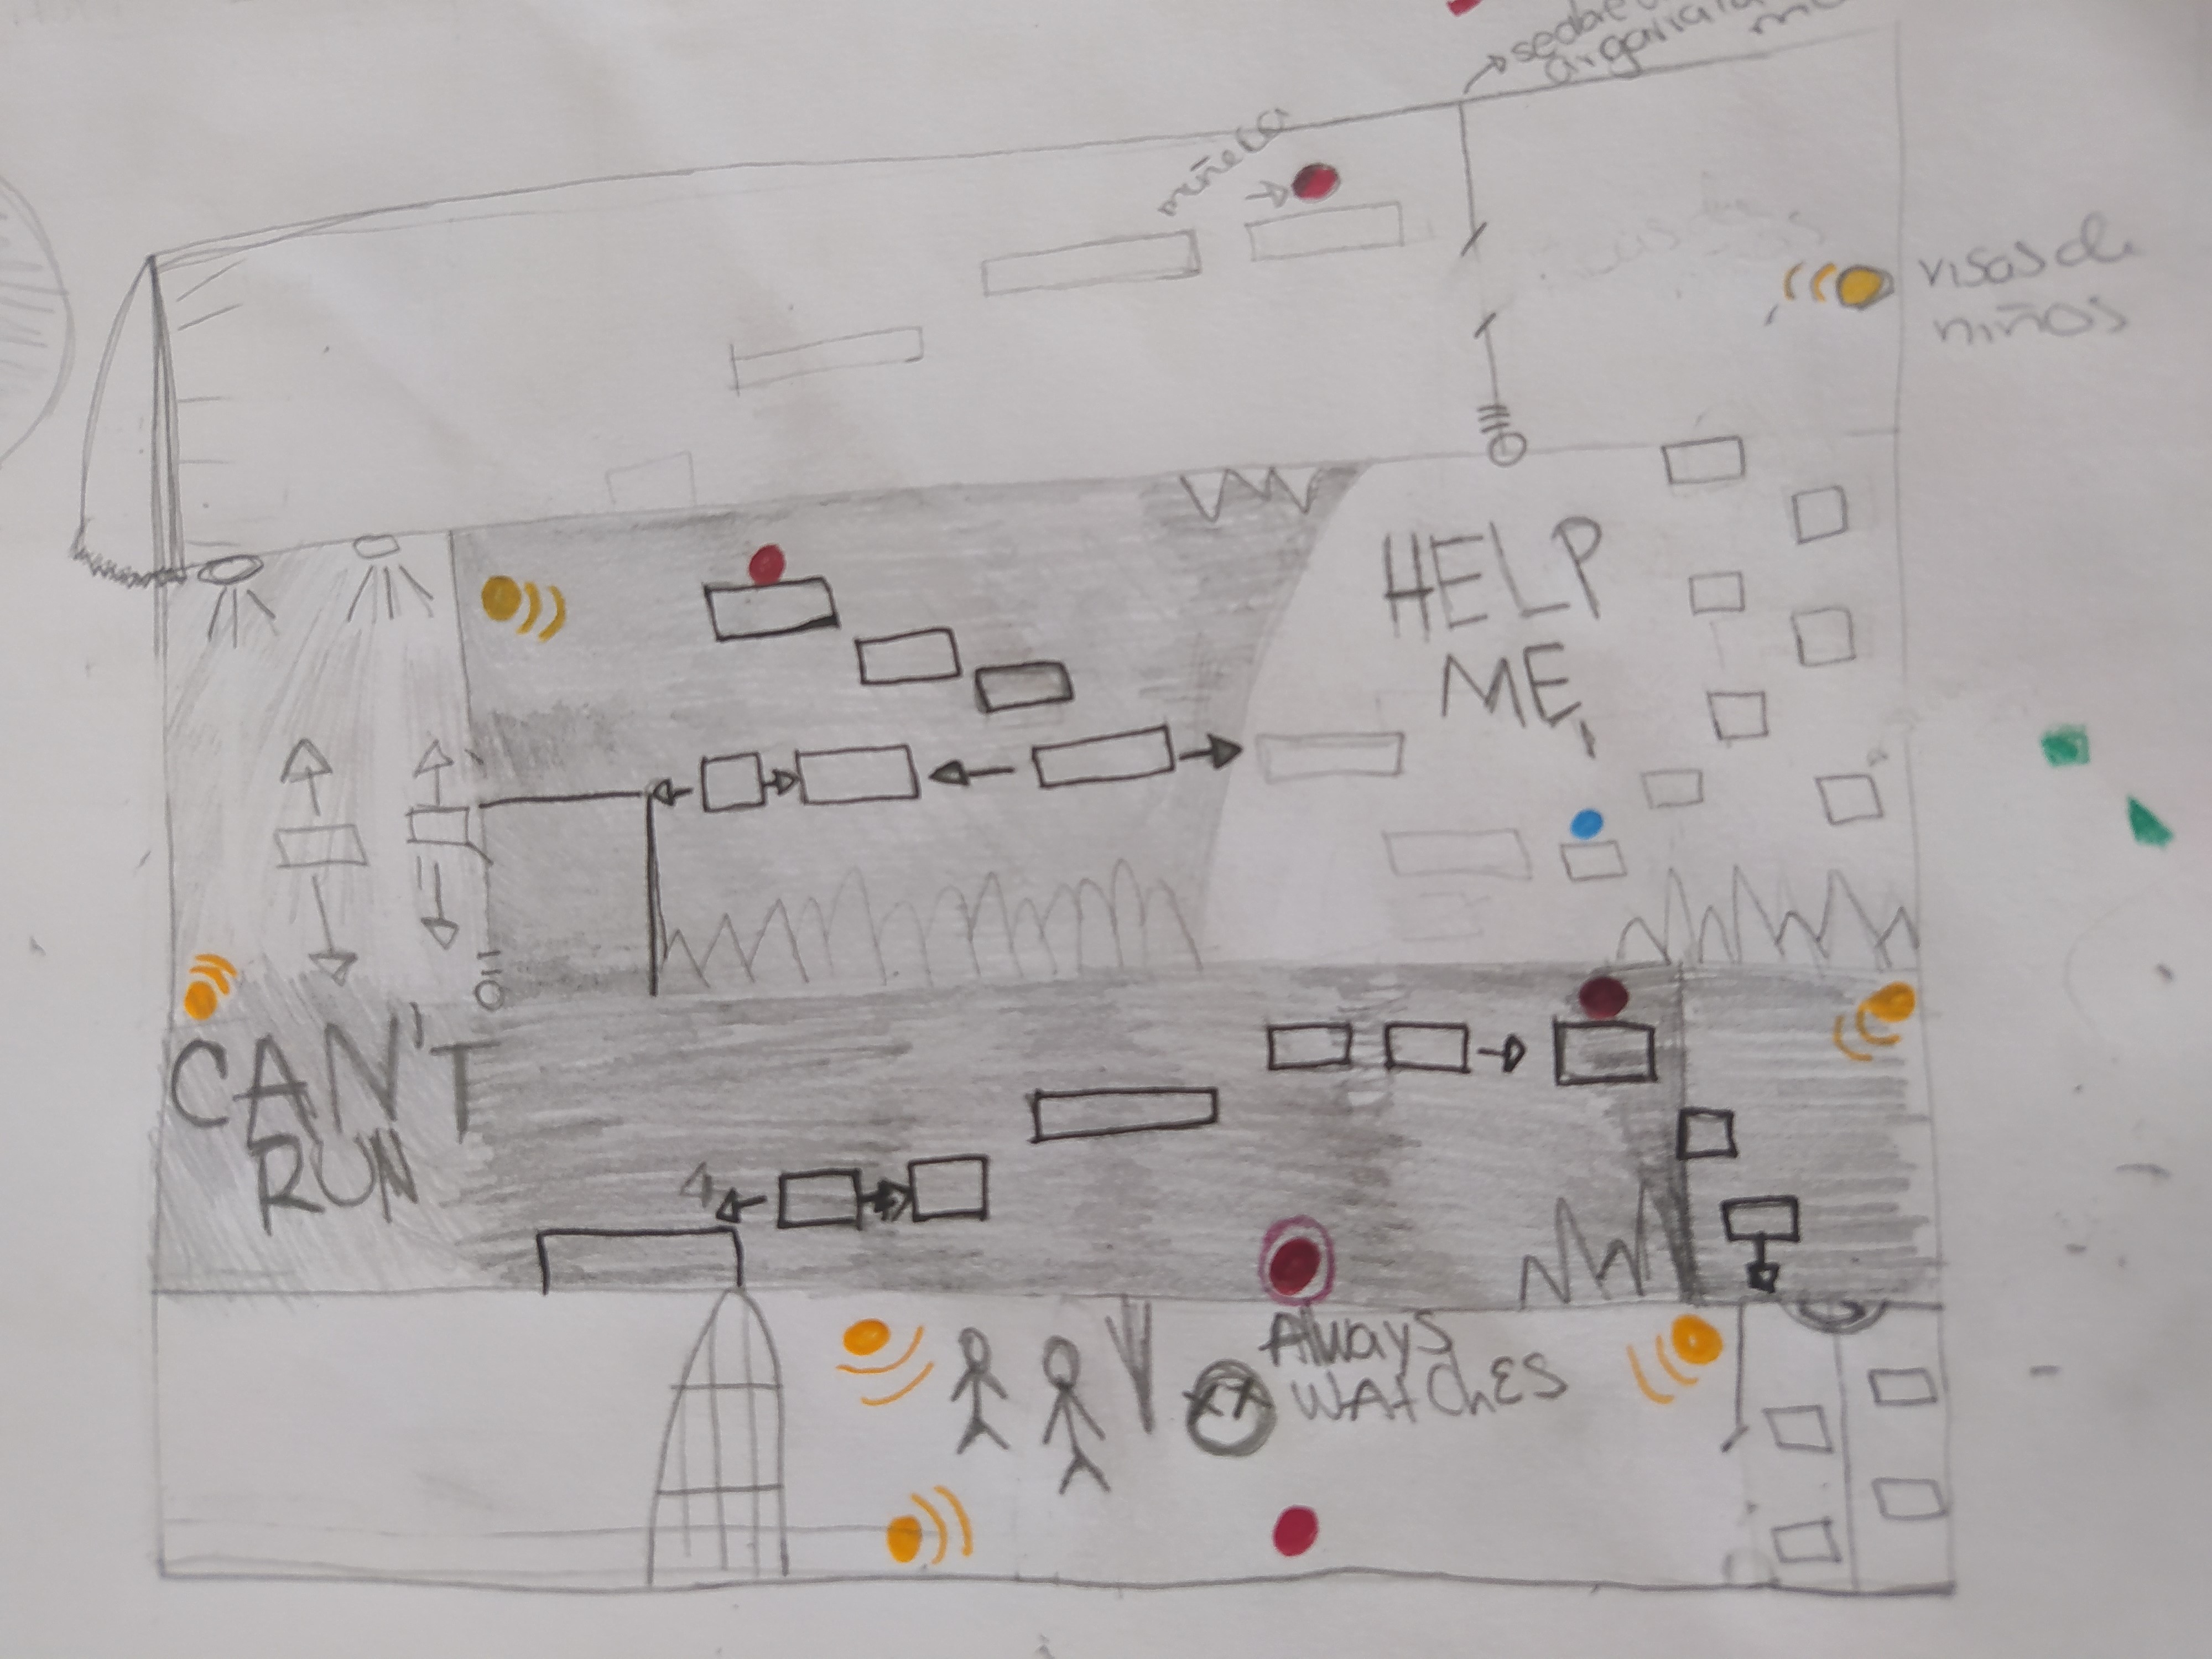 muñeca
visas de
niños
HELP
ME
CAN'T
RUN
Always
WATCHES